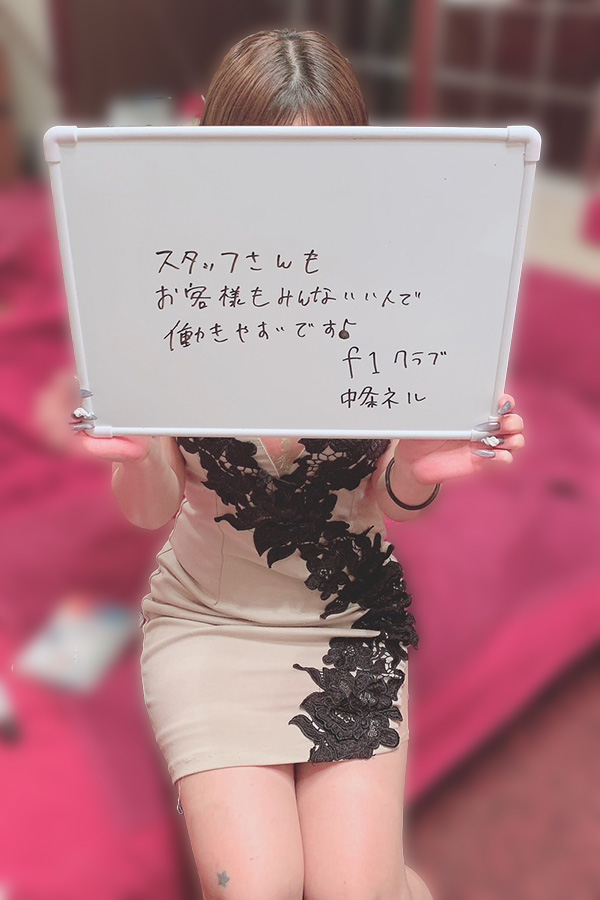 スタッフさんも
お客様もみんないい人で
働きやすいです♪
f1クラブ
中条ネル